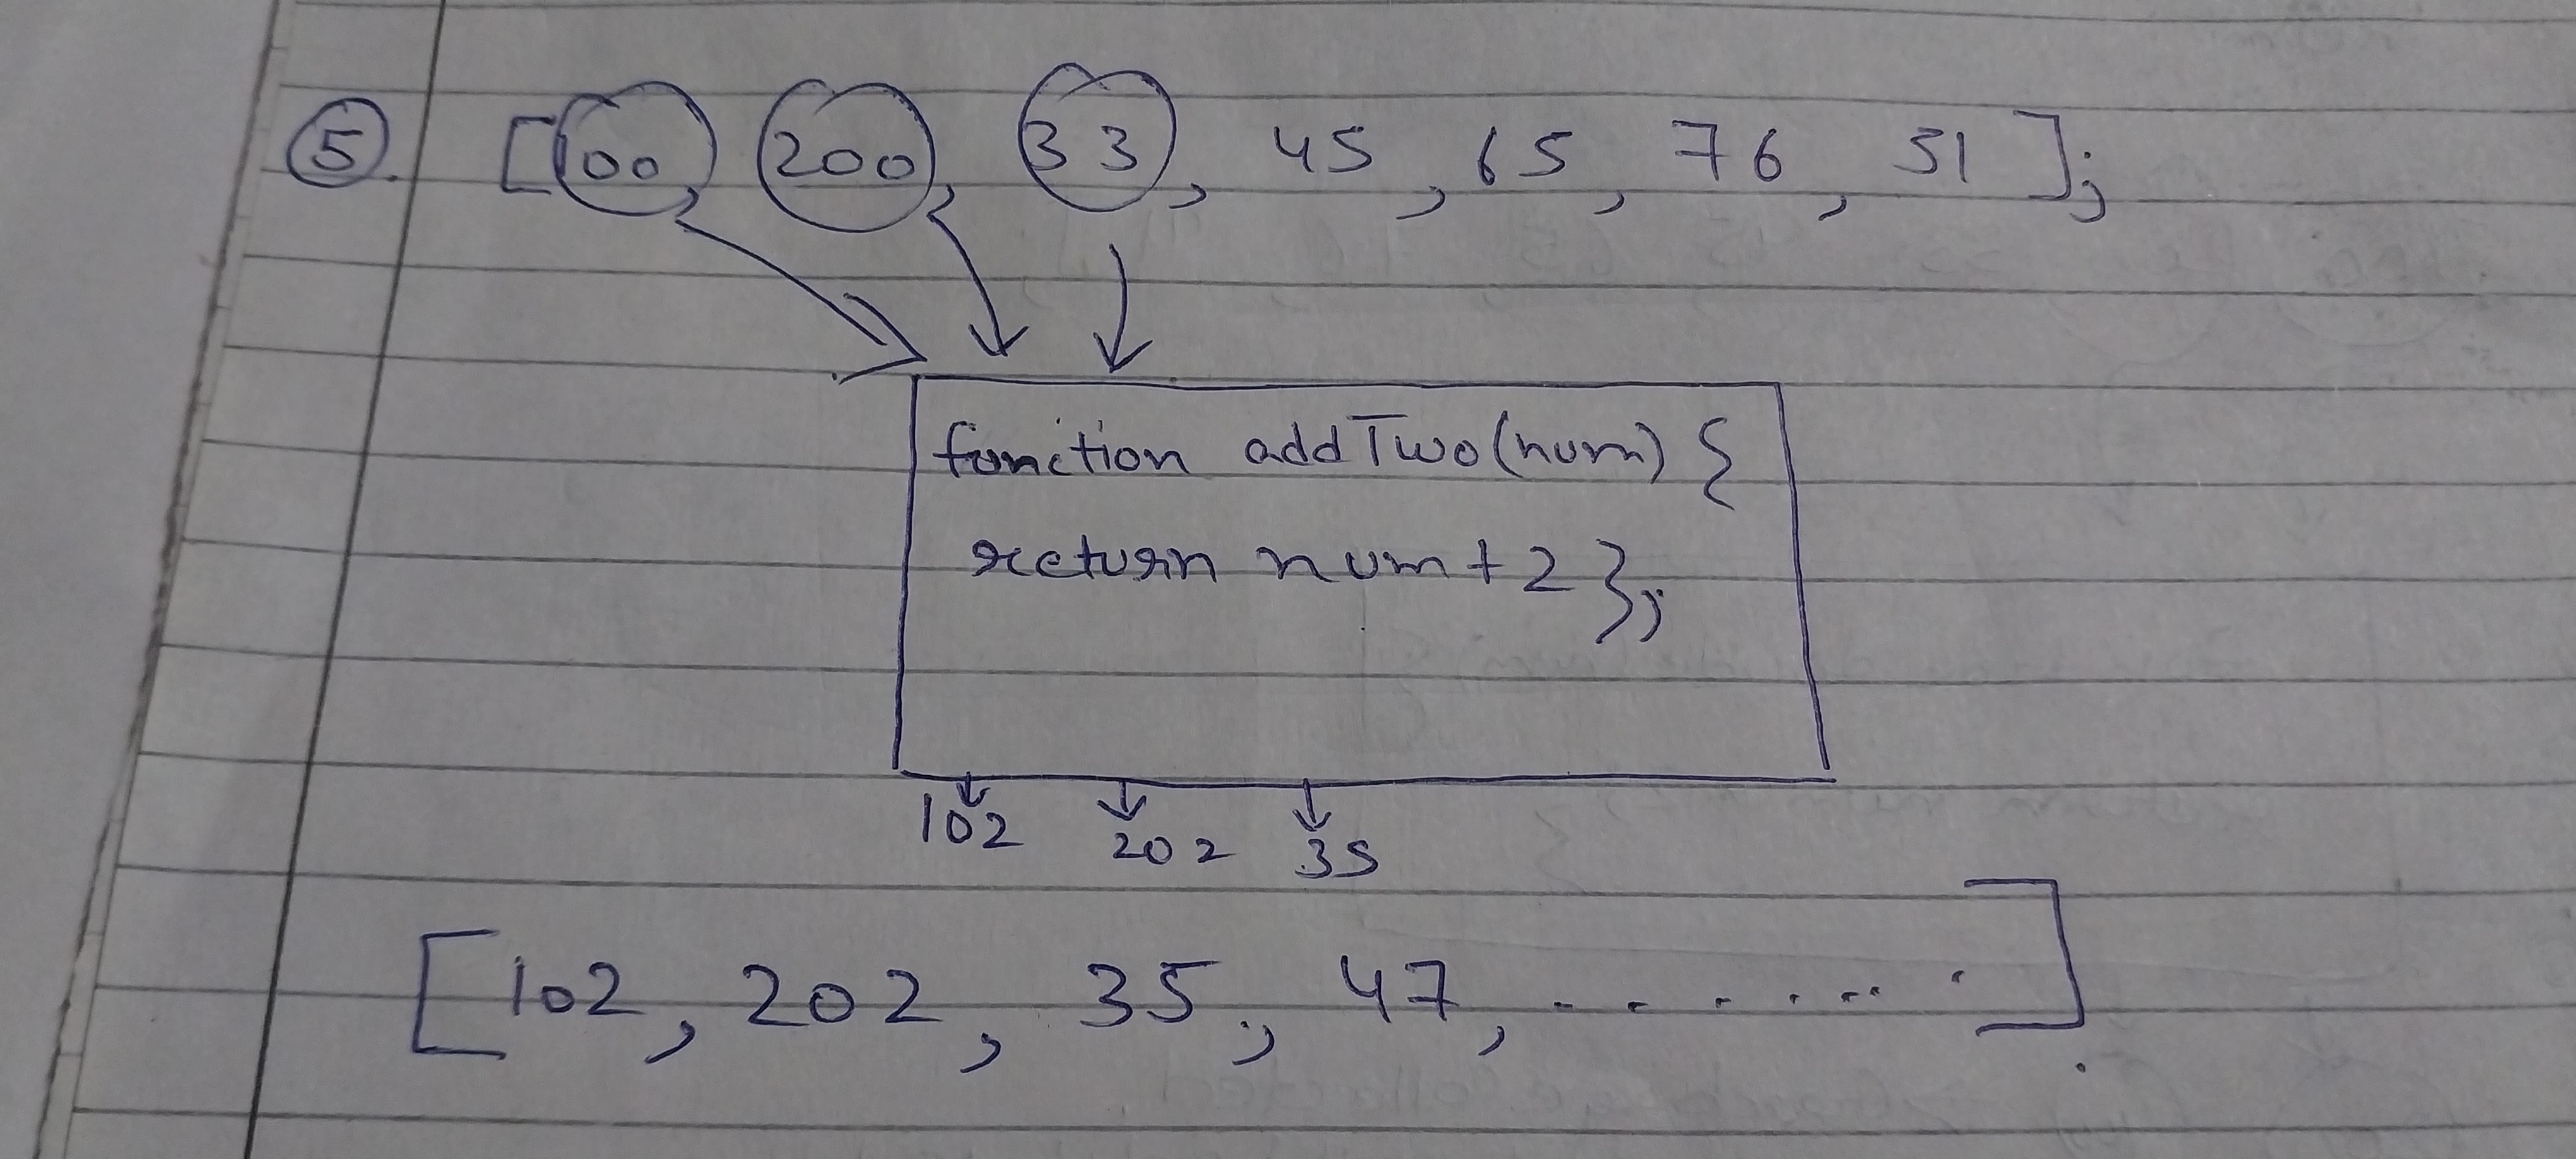 5. [100, 200, 33, 45, 65, 76, 31];
function addTwo(num) {
return num+2 };
102 202 35
[102, 202, 35, 47, . . . . . . . ]